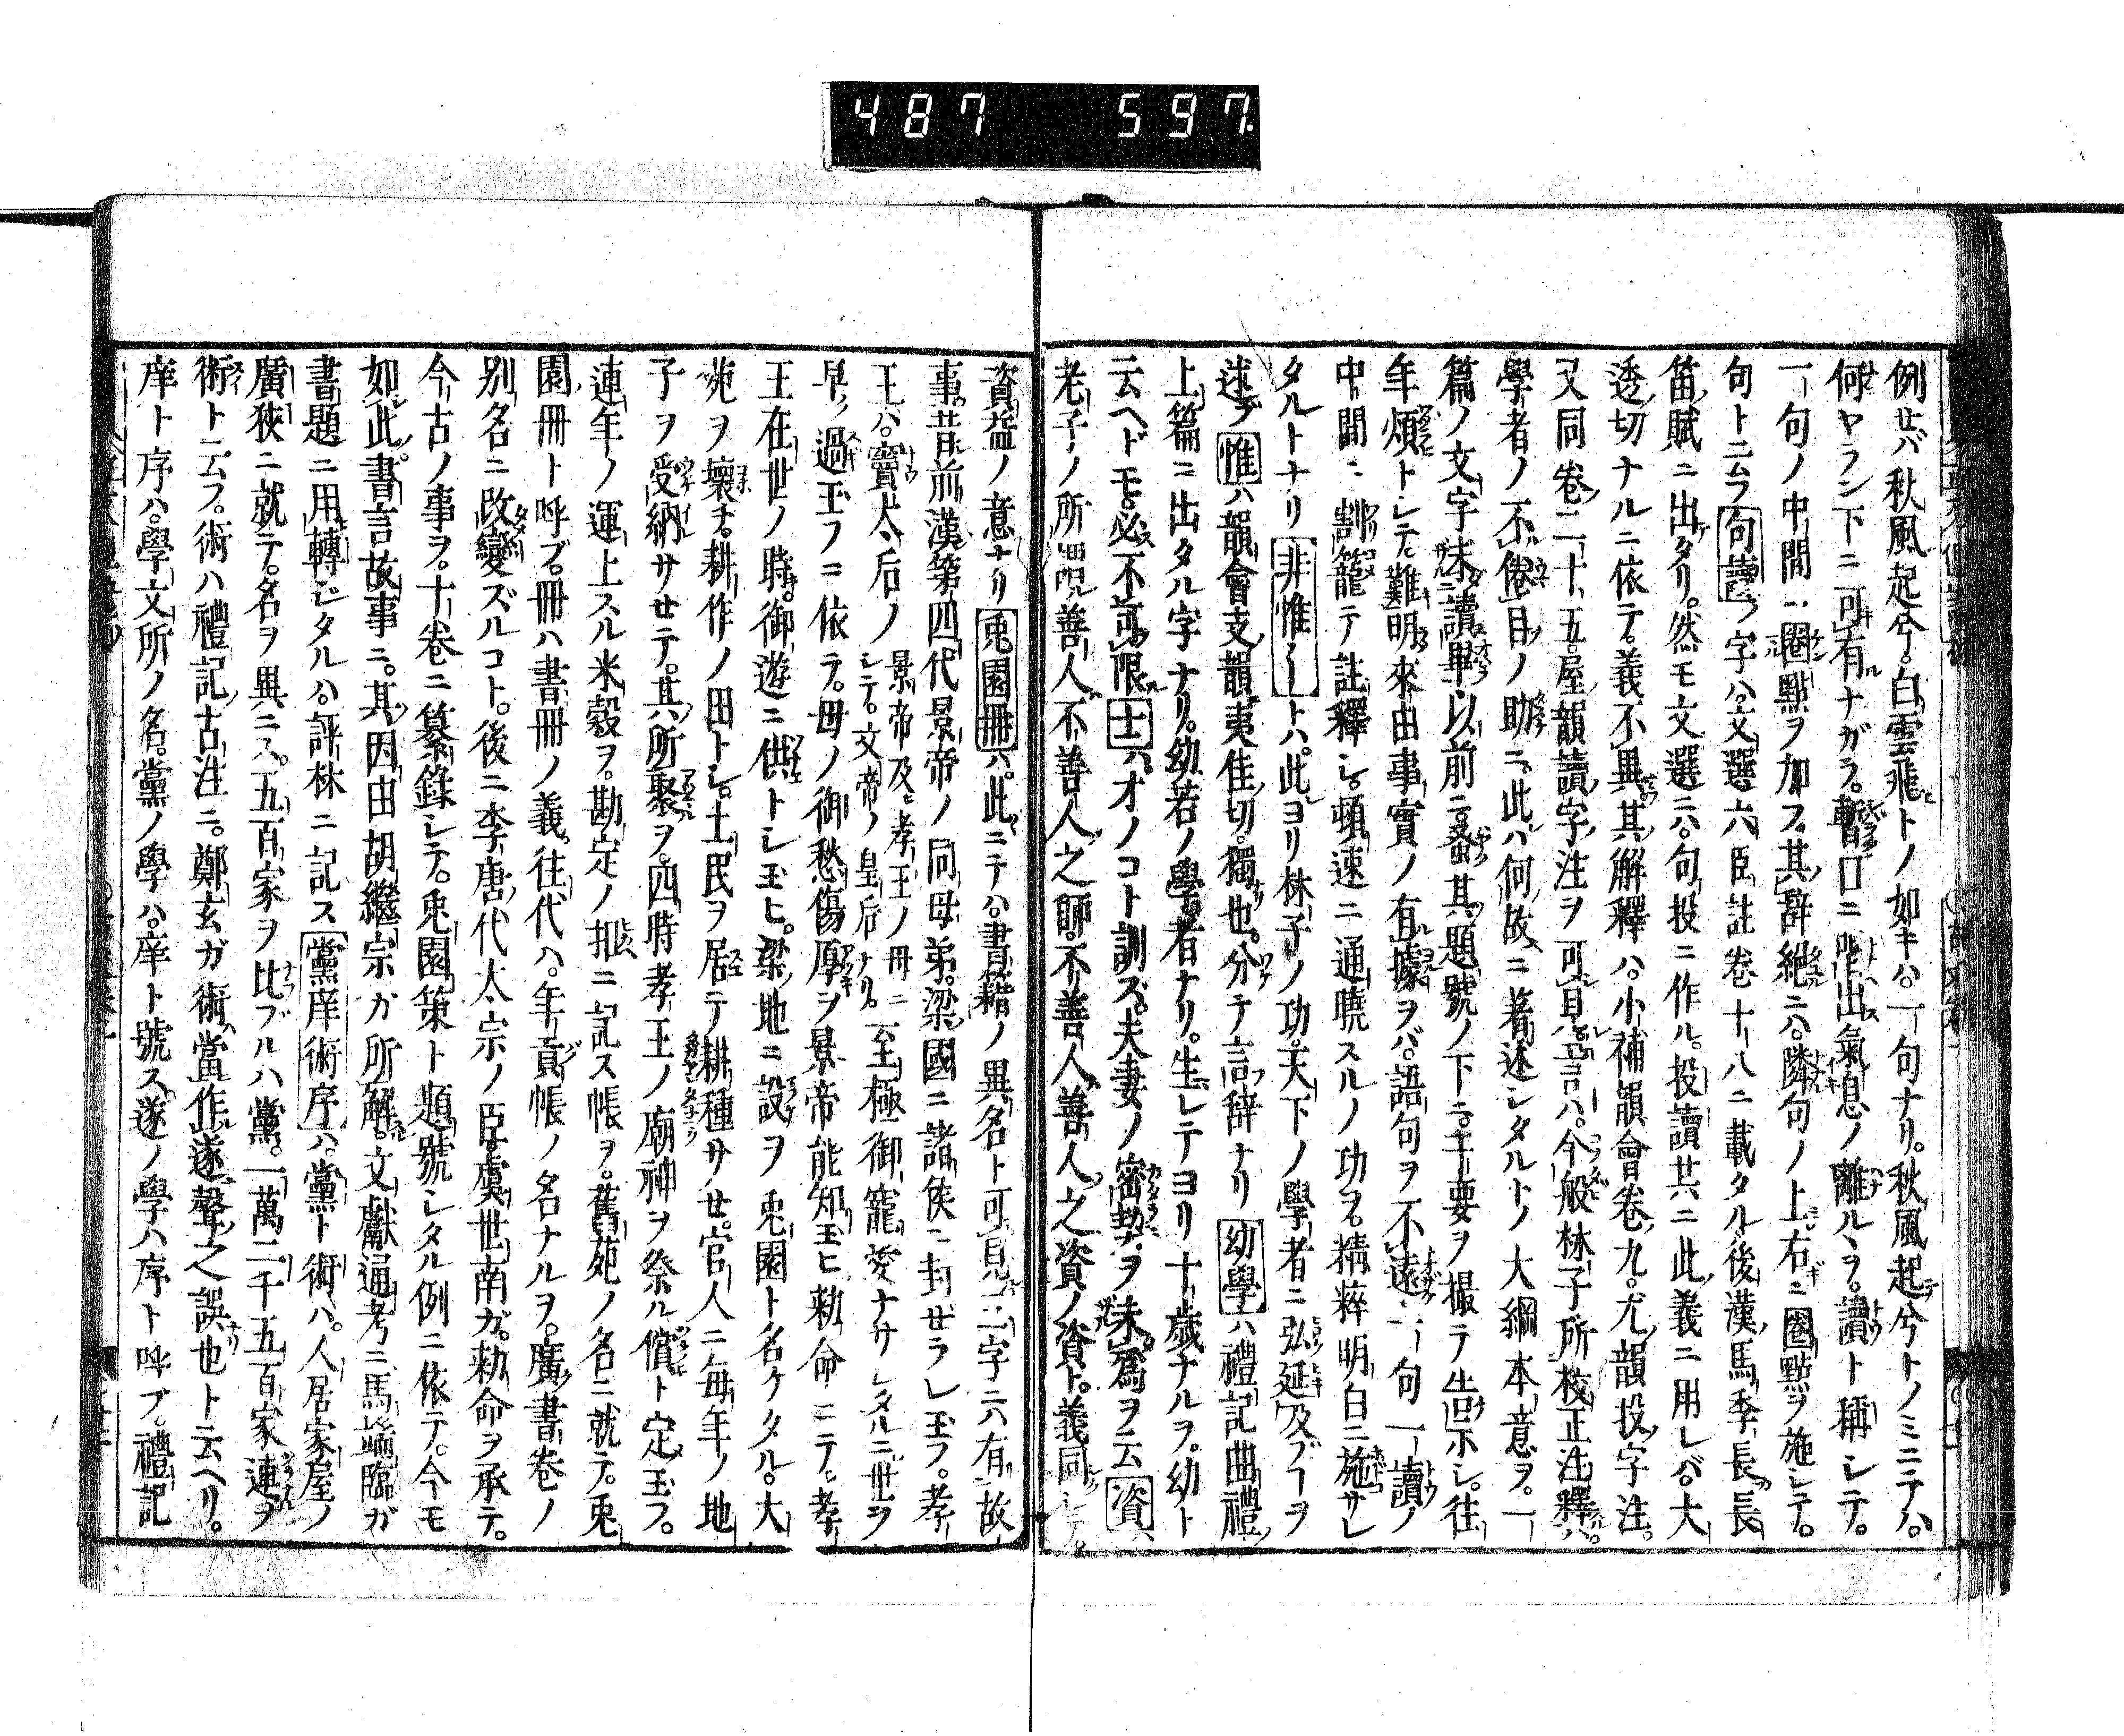 487 597.
例セバ秋風起兮。白雲飛トノ如キハ。一句ナリ。秋風起兮トノミニテハ。
何ヤラン下ニ可有ナガラ。暫口ニ唯出氣息ノ離ルヽヲ。讀ト稱シテ。
一句ノ中間ニ圏點ヲ加フ。其辭絶ニハ。隣句ノ上右ニ圏點ヲ施シテ。
句ト云フ句讀ノ字ハ文選六臣註卷十八ニ載タル後漢馬季長長
笛賦ニ出タリ。然モ文選ニハ。句投ニ作ル。投讀共ニ此義ニ用レバ。大
透切ナルニ依テ。義不異其解釋ハ。小補韻會卷九。尤韻投字注。
又同卷二十五。屋韻讀字注ヲ可見。言ハ。今般林子所校正注釋ハ。
學者ノ不倦目ノ助ニ。此ハ何故ニ著述シタルトノ大綱本意ヲ。一
篇ノ文字未讀畢以前ニ。爰其題號ノ下ニ。干要ヲ撮テ告示シ。往
年煩トシテ。難明來由事實ノ有據ヲバ。語句ヲ不遠一句一讀ノ
中間ニ割籠テ註釋シ。頓速ニ通曉スルノ功ヲ。精粹明白ニ施サレ
タルトナリ非惟〱トハ。此ヨリ林子ノ功。天下ノ學者ニ弘延及ブヿヲ
述ブ惟ハ韻會支韻夷佳切。獨也。分テ言辞ナリ幼學ハ禮記曲禮
上篇ニ出タル字ナリ。幼若ノ學者ナリ。生レテヨリ十歳ナルヲ。幼ト
云ヘドモ。必不可限士ハ。オノコト訓ズ。夫妻ノ密契ヲ未爲ヲ云資ハ
老子ノ所謂善人不善人之師。不善人善人之資ノ資ト。義同シテ。
資益ノ意ナリ兎園冊ハ。此ニテハ書籍ノ異名ト可見二字ニハ有故
事。昔前漢第四代景帝ノ同母弟。梁國ニ諸侯ニ封ゼラレ玉フ。孝
王ハ。竇太后ノ景帝及孝王ノ母ニシテ。文帝ノ皇后ナリ。至極御寵愛ナサレタルニ世ヲ
早ク過玉フニ依テ。母ノ御愁傷厚ヲ景帝能知玉ヒ勅命ニテ。孝
王在世ノ時。御遊ニ供トシ玉ヒ。梁地ニ設ヲ兎園ト名ケタル。大
苑ヲ壞チ。耕作ノ田トシ。土民ヲ居テ耕種サセ。官人ニ毎年ノ地
子ヲ受納サセテ。其所聚ヲ。四時孝王ノ廟神ヲ祭ル償ト定玉フ。
連年ノ運上スル米穀ヲ。勘定ノ扣ニ記ス帳ヲ。舊苑ノ名ニ就テ。兎
園冊ト呼ブ。冊ハ書冊ノ義。往代ハ。年貢帳ノ名ナルヲ。廣書卷ノ
別名ニ改變ズルコト。後ニ李唐代太宗ノ臣虞世南ガ。勅命ヲ承テ。
今古ノ事ヲ。十卷ニ纂錄シテ。兎園策ト題號シタル例ニ依テ。今モ
如此。書言故事ニ。其因由胡繼宗ガ所解。文獻通考ニ馬端臨ガ
書題ニ用轉ジタルハ。評林ニ記ス黨庠術序ハ。黨ト術ハ。人居家屋ノ
廣狹ニ就テ。名ヲ異ニス。五百家ヲ比ブルハ黨。一萬二千五百家連ヲ
術ト云フ。術ハ禮記古注ニ。鄭玄ガ術當作遂聲之誤也ト云ヘリ。
庠ト序ハ。學文所ノ名。黨ノ學ハ。庠ト號ス。遂ノ學ハ序ト呼ブ。禮記